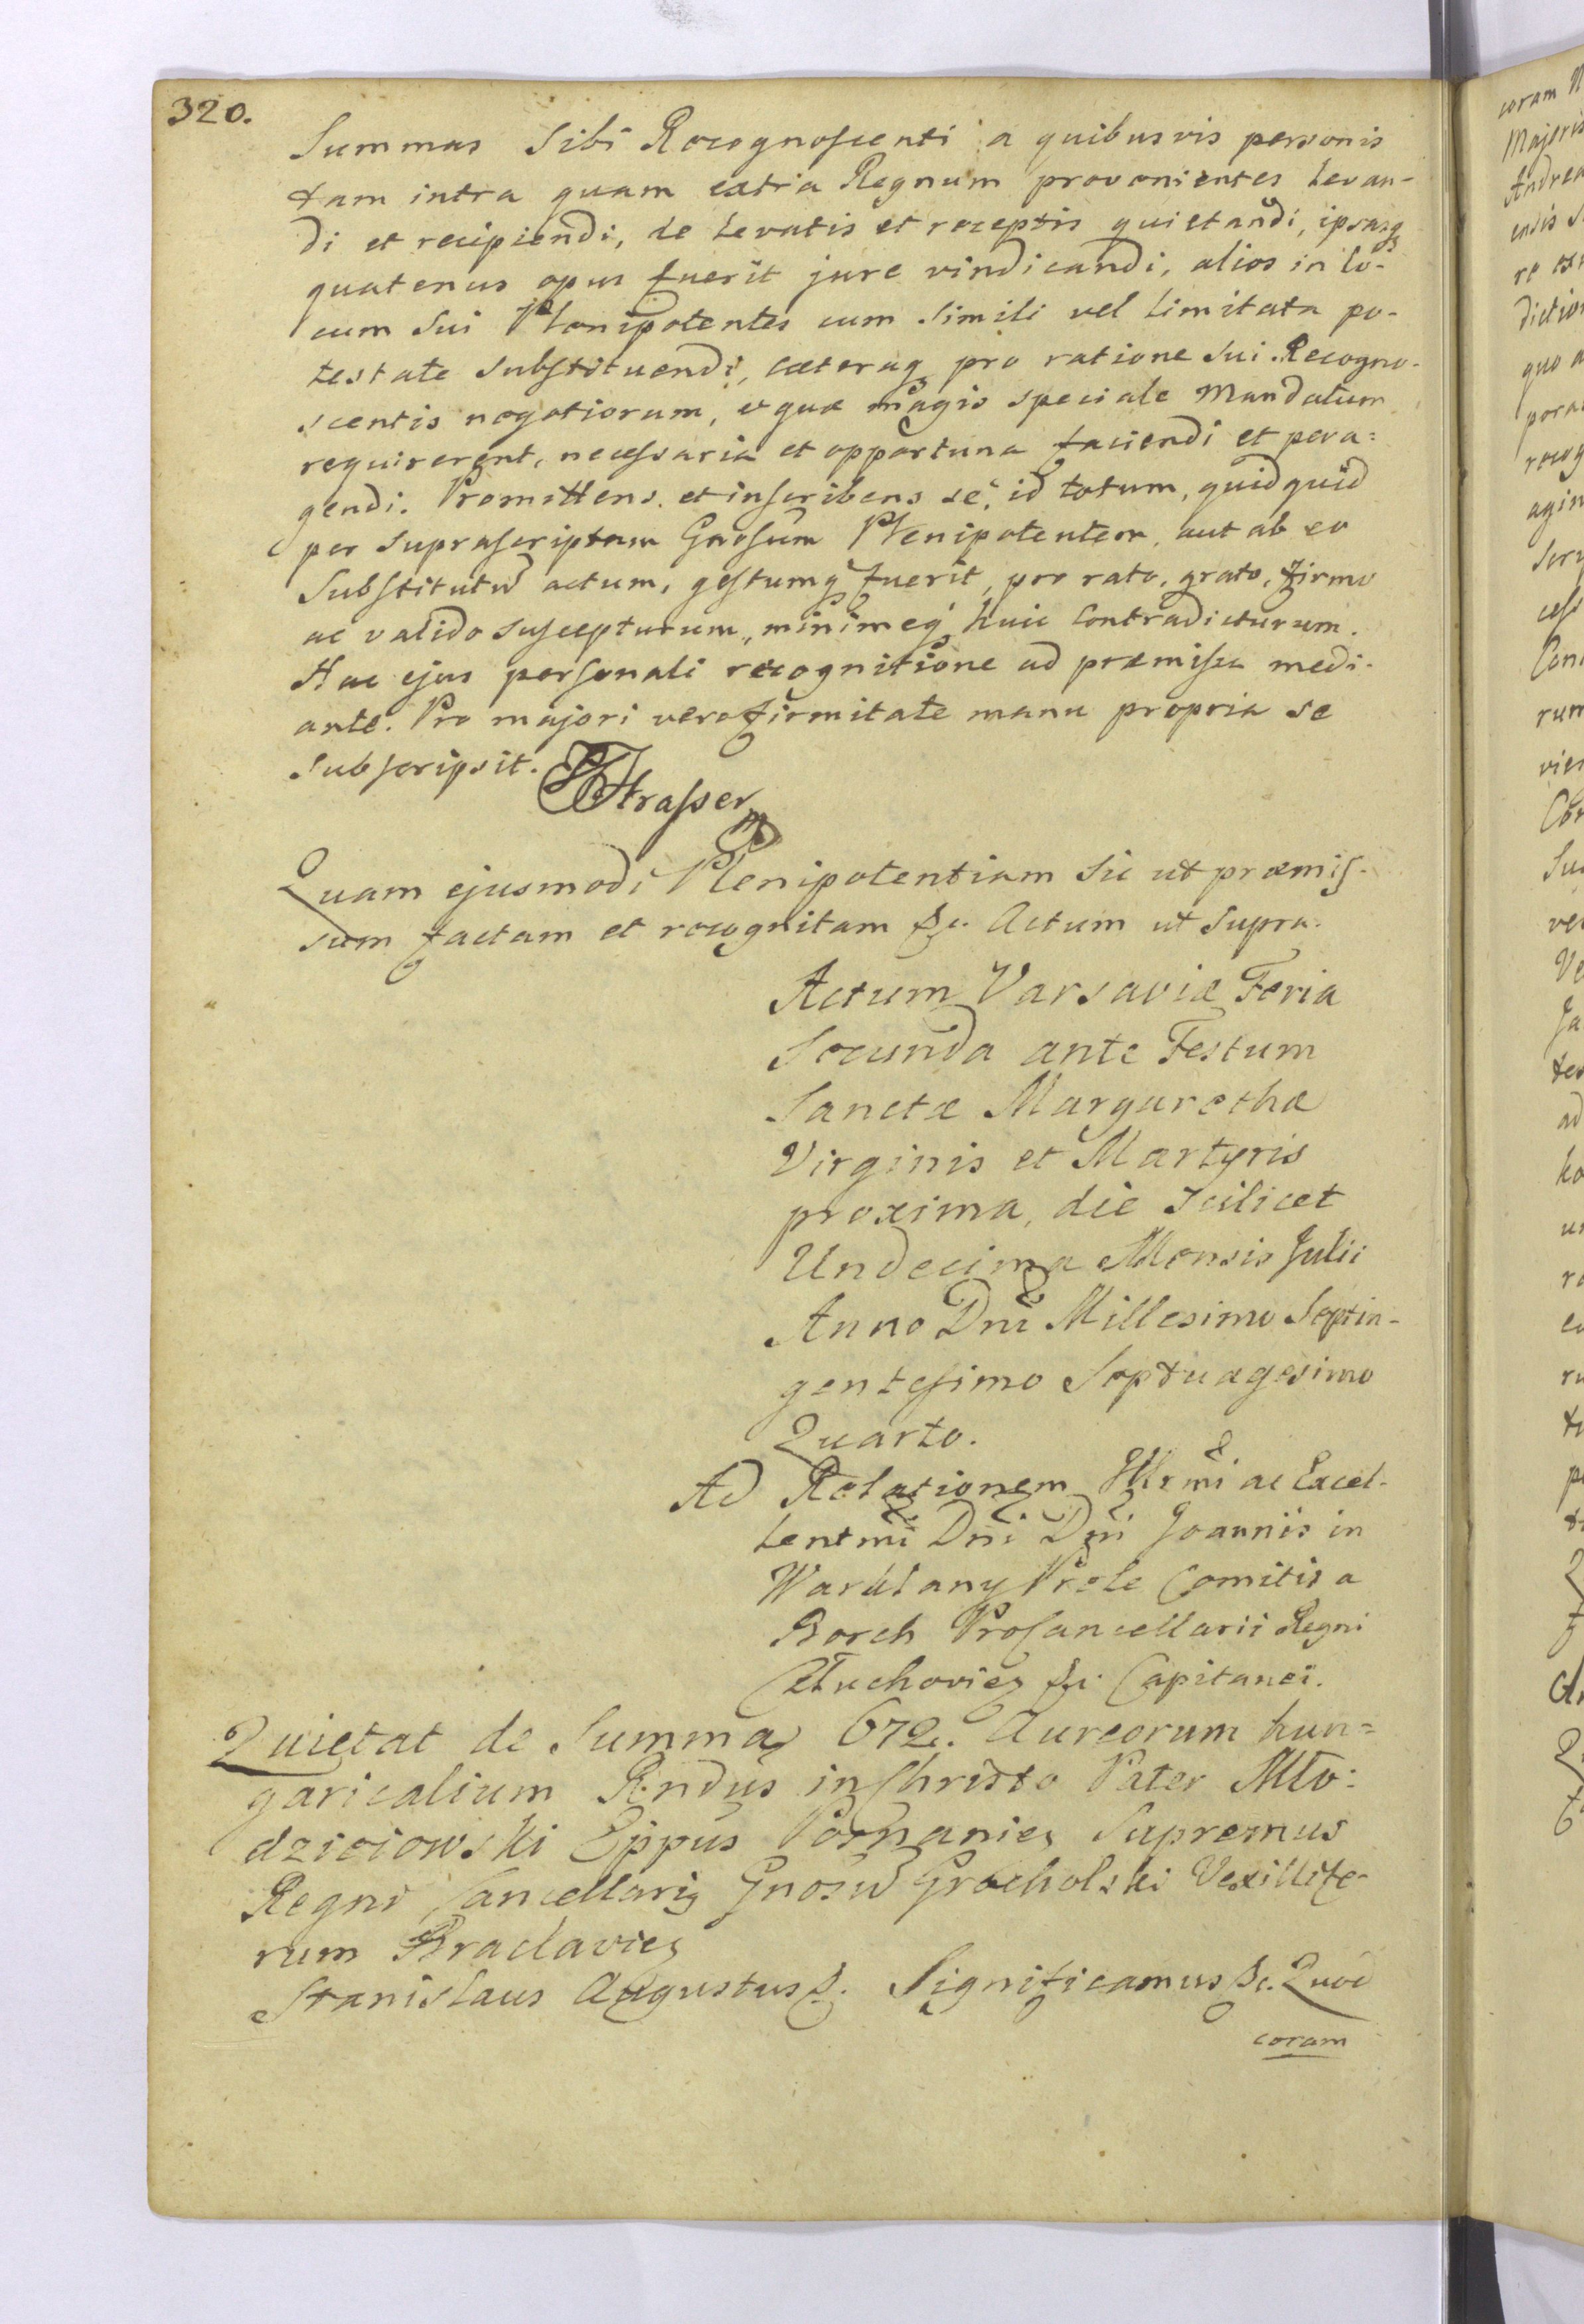 320.
Summas Sibi Recognoscenti a quibusvis personis
tam intra quam extra Regnum provenientes Levan-
di et recipiendi, de Levatis et receptis quietandi, ipsasq3
quatenus opus fuerit jure vindicandi, alios in lo-
cum sui Plenipotentes cum simili vel limitata po-
testate substituendi, cæteraq3 pro ratione sui Recogno-
scentis negotiorum, et quæ magis speciale Mandatum
requirerent, necessaria et opportuna faciendi et pera=
gendi. Promittens et inscribens se, id totum, quidquid
per suprascriptum Gnosum Plenipotentem, aut ab eo
Substitutū actum, gestumq3 fuerit, pro rato, grato, firmo
ac valido suscepturum, minimeq3 huic Contradicturum.
Hac ejus personali recognitione ad præmissa medi-
ante. Pro majori vero firmitate manu propria se
subscripsit.
Strasser
Quam ejusmodi Plenipotentiam sic ut præmis-
sum factam et recognitam &c. Actum ut supra.
Actum Varsaviæ Feria
Secunda ante Festum
Sanctæ Margarethæ
Virginis et Martyris
proxima, die scilicet
Undecima Mensis Julii
Anno Dni Millesimo Septin-
gentesimo Septuagesimo
Quarto.
Ad Relationem Illrmi ac Excel-
lentmi Dni Dni Joannis in
Warklany Prele Comitis a
Borch ProCancellarii Regni
&c. Capitanei.
Quietat de Summa 672. Aureorum hun=
garicalium Rndus in Christo Pater Mło-
dzieiowski Eppus Posnanies Supremus
Regni Cancellari9 Gnosū Grocholski Vexillife-
rum Braclavies
Stanislaus Augustus &. Significamus &c. Quod
coram
coram
Majoris